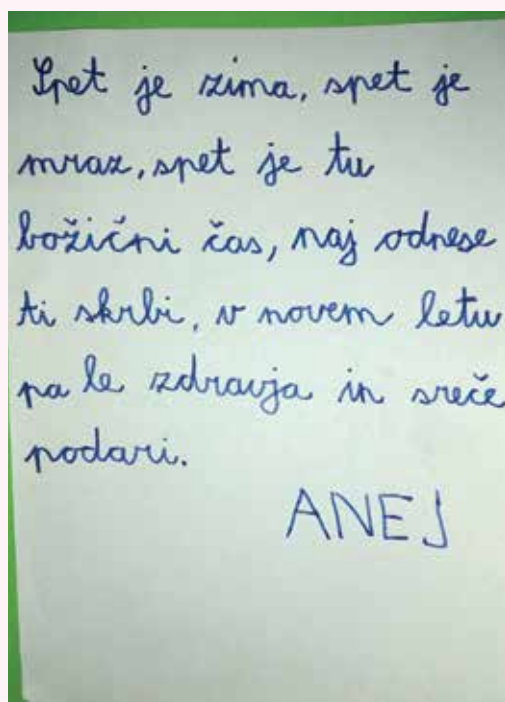 Spet je zima, spet je
mraz, spet je tu
božični čas, naj odnese
ti skrbi, v novem letu
pa le zdravja in sreče
podari.
ANEJ